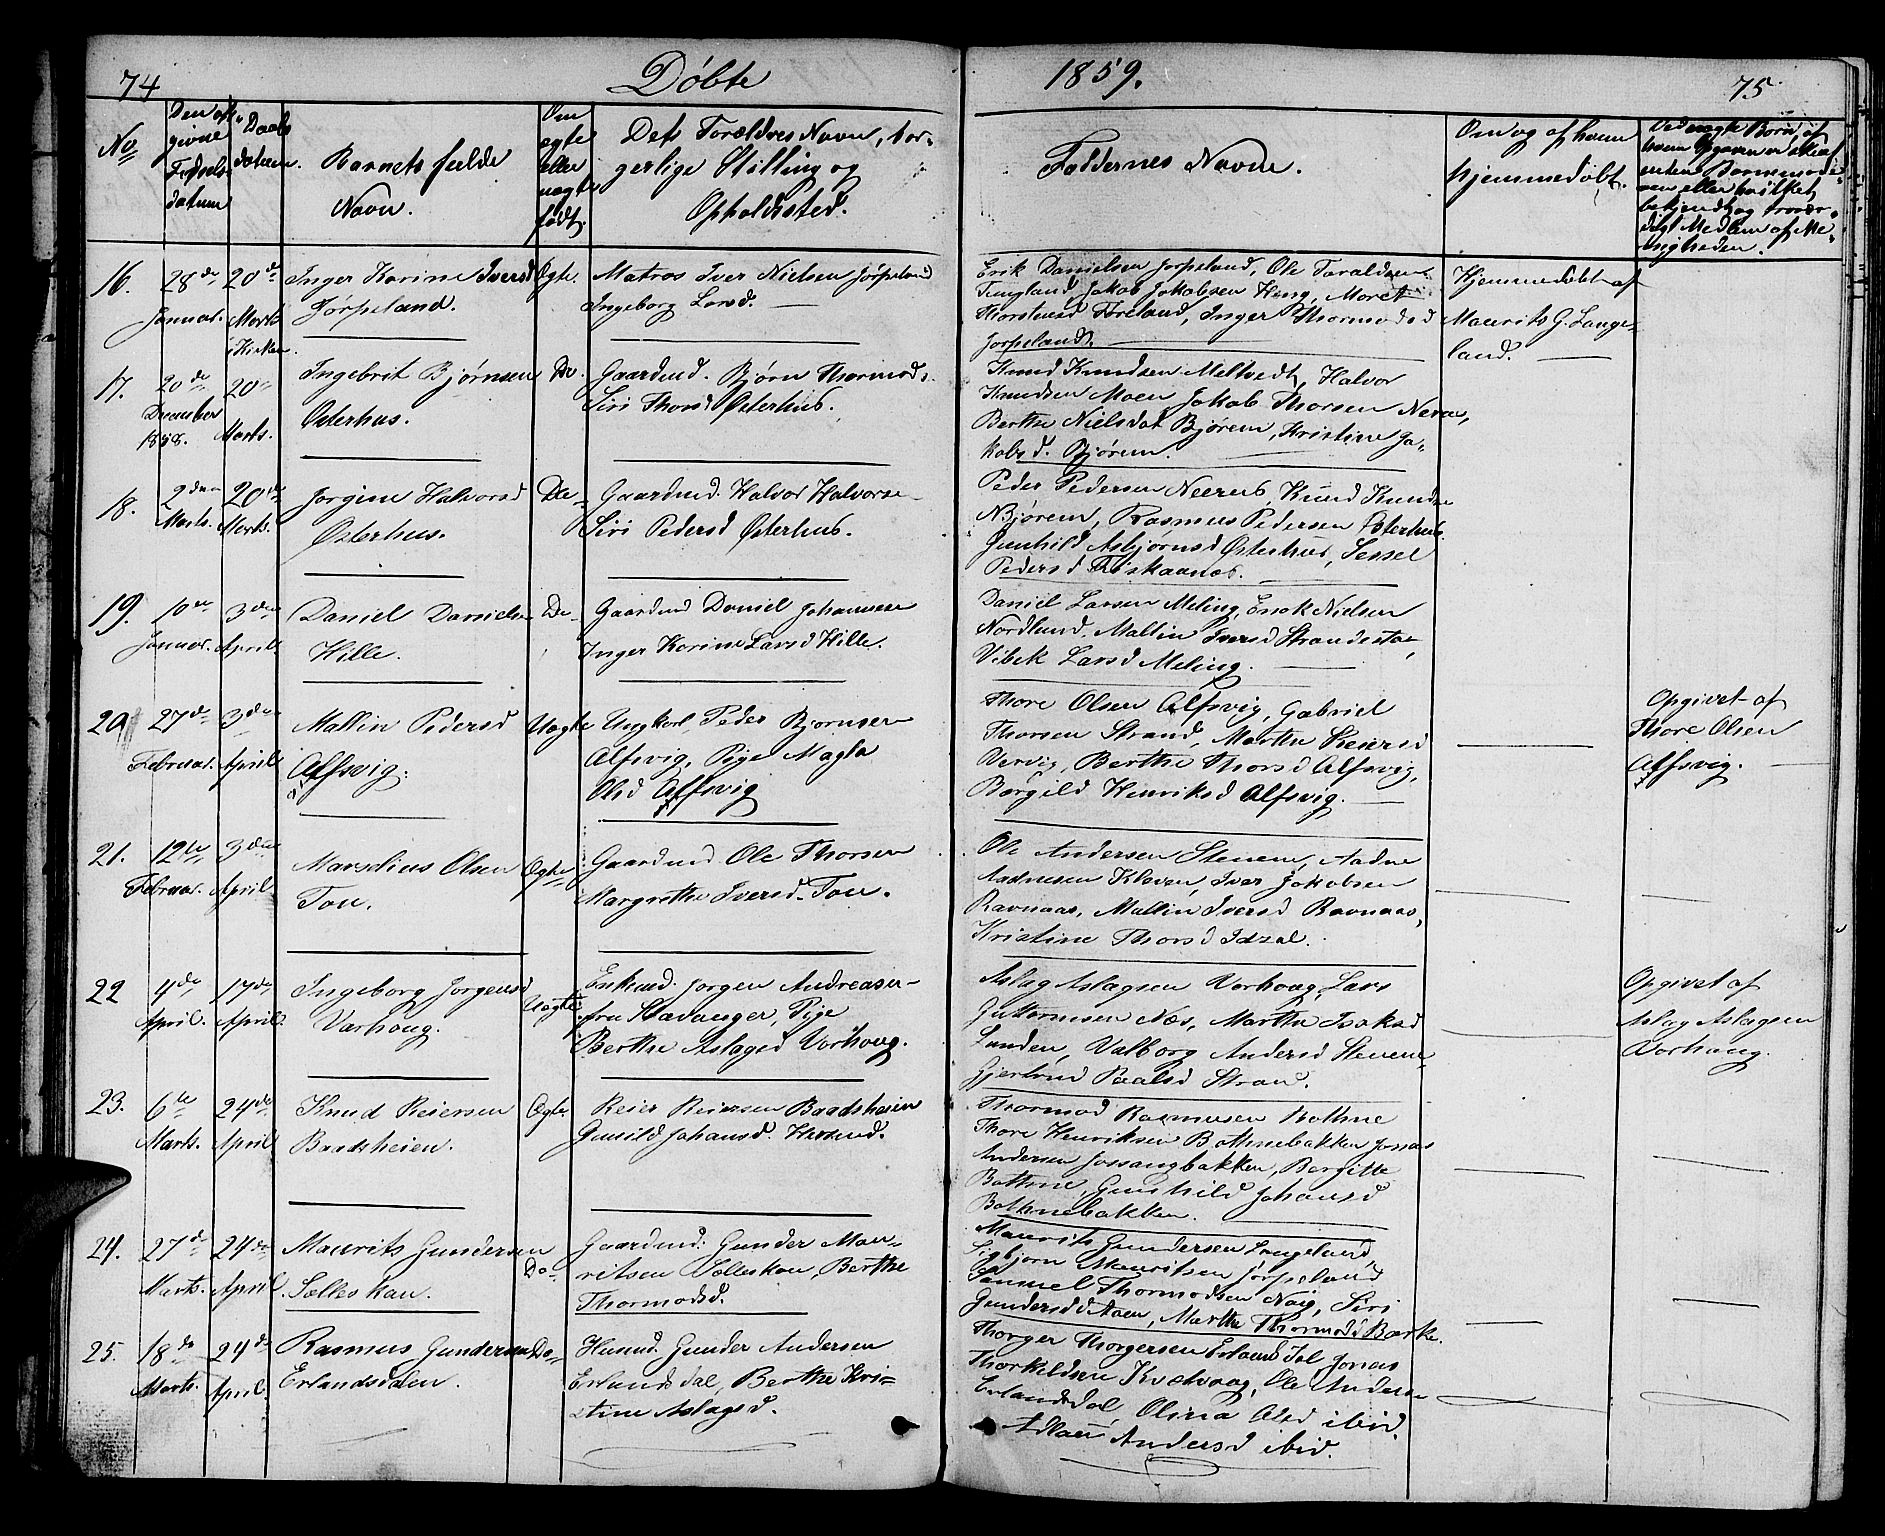 74
Døbte
1859.
75
No
Den op-
givne
Fødsels-
datum
Daabs
datum.
Barnets fulde
Navn.
Om
ægte
eller
uægte
født.
Dets Forældres Navn, bor-
gerlige Stilling og
Opholdssted.
Faddernes Navne.
Om og af hvem
hjemmedøbt.
Ved uægte Børn, af
hvem Opgaven er skeet
enten Barnemode-
ren eller hvilket
bekjendt og trovær-
digt Medlem af Me-
nigheden.
16.
28de
Januar.
20de
Marts
i Kirken.
Inger Karine Iversd
Jørpeland.
Ægte.
Matros Iver Nielsen Jørpeland
Ingeborg Larsd.
Erik Danielsen Jørpeland, Ole Taraldsen
Tungland, Jakob Jakobsen Heng, Maret
Thorstensd Føreland, Inger Thormodsd
Jørpeland.
Hjemmedøbt af
Maurits G. Lange-
land.
17.
20de
December
1858.
20de
Marts.
Ingebrit Bjørnsen
Østerhus.
Do.
Gaardmd. Bjørn Thormods.
Siri Thorsd Østerhus.
Knud Knudsen Meltvedt, Halvor
Knudsen Moen Jakob Thorsen Neerem,
Berthe Nielsdat Bjørem, Kristine Ja-
kobsd. Bjørem.
18.
2den
Marts.
20de
Marts.
Jorgine Halvorsd
Østerhus.
Do-
Gaardmd. Halvor Halvorsen
Siri Pedersd Østerhus.
Peder Pedersen Neerem Knud Knudsen
Bjørem, Rasmus Pedersen Østerhus.
Gunhild Asbjørnsd Østerhus, Sessel
Pedersd Friskaanes.
19.
10de
Januar.
3den
April.
Daniel Danielsen
Hille.
Do-
Gaardmd Daniel Johannesen
Inger Karine Larsd Hille.
Daniel Larsen Meling, Enok Nielsen
Nordlund. Mallin Iversd Strandestøe,
Vibek Larsd Meling.
20
27de
Februar.
3den
April.
Mallin Pedersd
Alfsvig.
Uægte
Ungkarl, Peder Bjørnsen
Alfsvig, Pige Magla
Olsd Alfsvig
Thore Olsen Alfsvig, Gabriel
Thorsen Strand, Marthe Reiersd
Vervig, Berthe Thorsd Alfsvig,
Børgild Henriksd Alfsvig.
Opgivet af
Thore Olsen
Alfsvig.
21.
12te
Februar.
3den
April.
Marselius Olsen
Tou.
Ægte.
Gaardmd Ole Thorsen
Margrethe Iversd. Tou.
Ole Andersen Stenene, Aadne
Aadnesen Kleven, Iver Jakobsen
Ravnaas, Mallin Iversd Ravnaas,
Kristine Thorsd Idzal.
22
4de
April.
17de
April.
Ingeborg Jorgensd
Varhoug.
Uægte.
Enkmd. Jorgen Andreasen
fra Stavanger, Pige
Berthe Aslagsd Vorhoug.
Aslag Aslagsen Vorhoug, Lars
Guttormsen Næs, Marthe Isaksd
Lunden, Valborg Andersd Stenene
Gjertrud Paalsd Strand.
Opgivet af
Aslag Aslagsen
Vorhoug.
23.
6te
Marts.
24de
April
Knud Reiersen
Baadsheien.
Ægte.
Reier Reiersen Baadsheien
Gunild Johansd. Husmd.
Thormod Rasmusen Bothne
Thore Henriksen Bothnebakken Jonas
Andersen Jossangbakken, Bergitte
Bothne, Gunhild Johansd
Bothnebakken.
24.
27de
Marts.
24de
April.
Maurits Gundersen
Sælleskau.
Do-
Gaardmd. Gunder Mau-
ritsen Sælleskou, Berthe
Thormodsd.
Maurits Gundersen Langeland,
Sigbjørn Mauritsen Jørpeland
Samuel Thormodsen Nøig, Siri
Gundersd Aaen, Marthe Thormodsd Barke.
25.
18de
Marts.
24de
April.
Rasmus Gundersen
Erlandsdalen.
Do-
Husmd. Gunder Andersen
Erlandsdal, Berthe Kri-
stine Aslagsd.
Thorger Thorgersen Erlandsdal Jonas
Thorkeldsen Kvalvaag, Ole Andersen
Erlandsdal Olina Olsd ibid.
Andersd ibid.